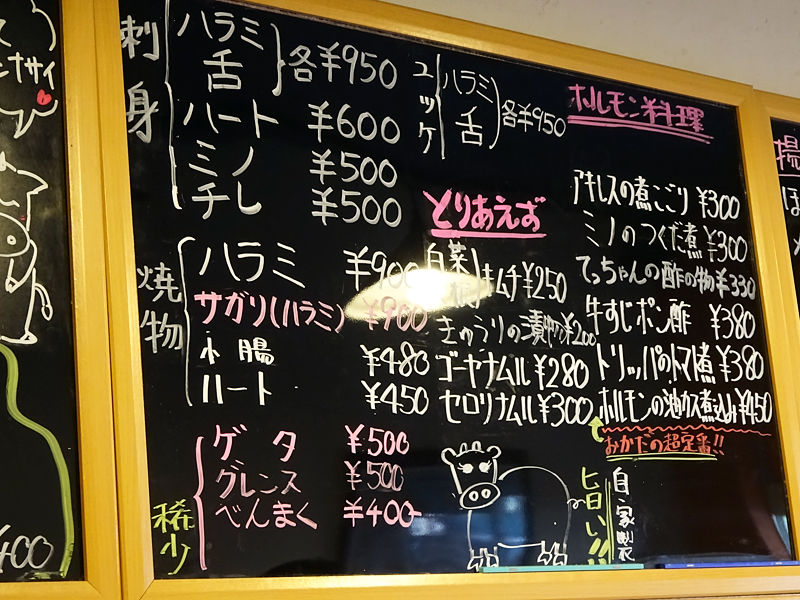 刺身
ハラミ
舌
各¥950
ハート ¥600
ミノ ¥500
チレ ¥500
焼物
ハラミ ¥900
サガリ(ハラミ) ¥900
小腸 ¥480
ハート ¥450
稀少
ゲタ ¥500
グレンス ¥500
べんまく ¥400
ユッケ
ハラミ
舌
各¥950
とりあえず
白菜
キムチ ¥250
きゅうりの漬物 ¥200
ゴーヤナムル ¥280
セロリナムル ¥300
ホルモン料理
アキレスの煮こごり ¥300
ミノのつくだ煮 ¥300
てっちゃんの酢の物 ¥330
牛すじポン酢 ¥380
トリッパのトマト煮 ¥380
ホルモンの油カス煮込み ¥450
おかだの超定番!!
旨い!!
自家製
揚
ナサイ
400